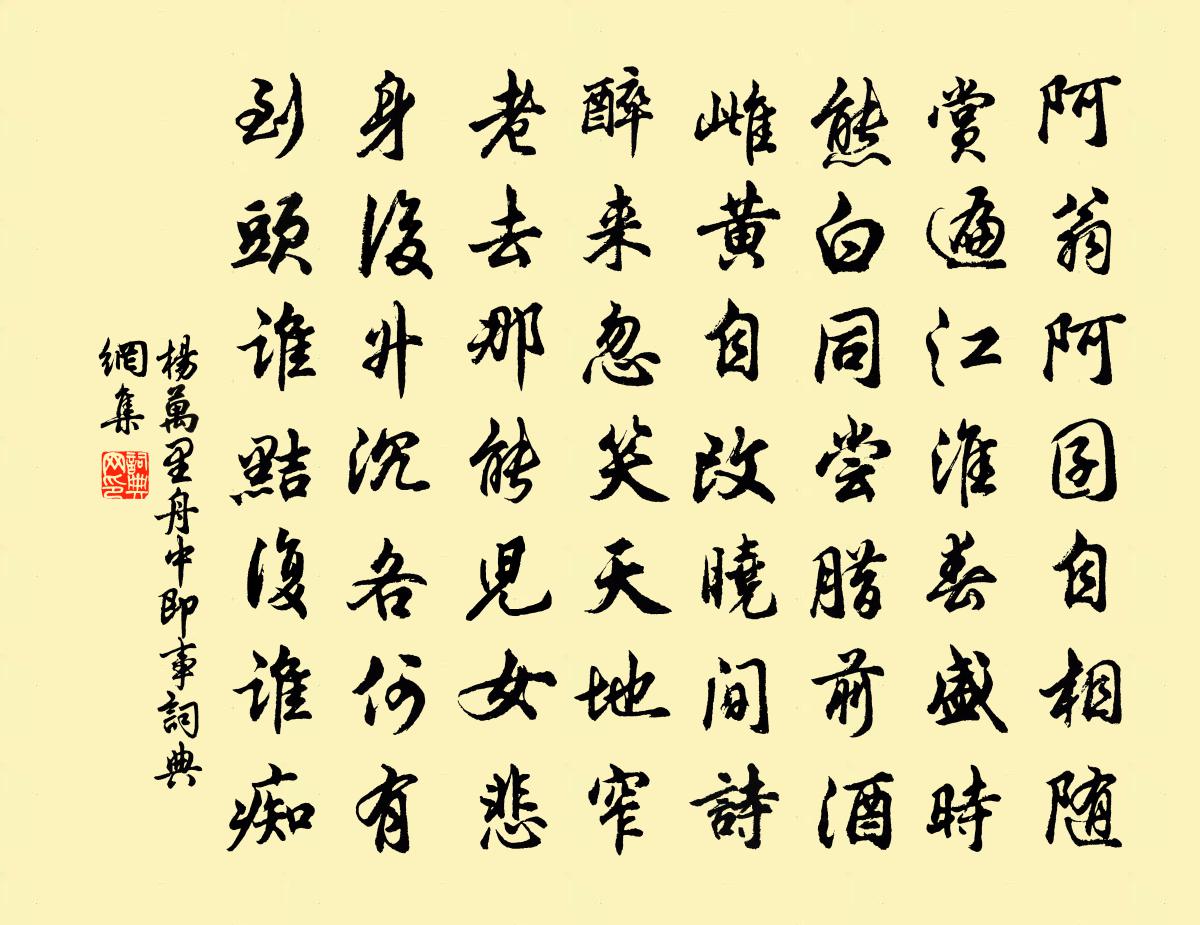 阿翁阿囝自相随
賞遍江淮春盛時
熊白同嘗腊前酒
雌黄自改曉間詩
醉来忽笑天地窄
老去那能兒女悲
身後升沉各何有
到頭誰黠復誰痴
楊萬里舟中即事詞典
網集
詞典
网印